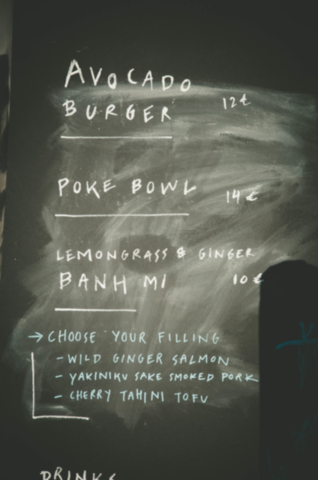 AVOCADO
BURGER 12€
POKE BOWL 14€
LEMONGRASS & GINGER
BANH MI 10€
→ CHOOSE YOUR FILLING
- WILD GINGER SALMON
- YAKINIKU SAKE SMOKED PORK
- CHERRY TAHINI TOFU
DRINKS